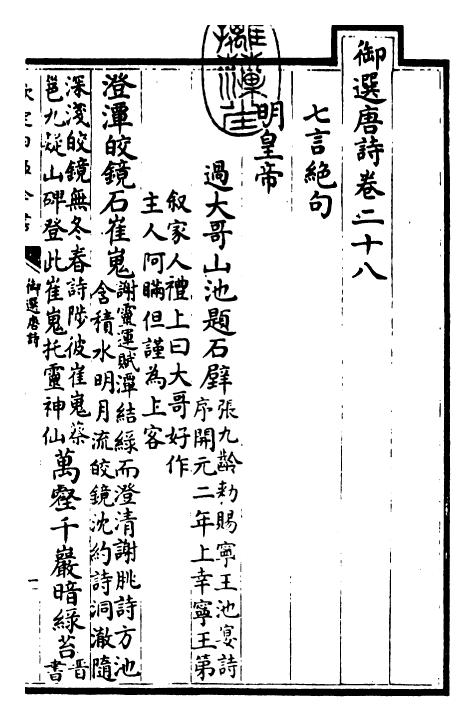 御選唐詩卷二十八
七言絕句
明皇帝
過大哥山池題石壁
張九齡勅賜寧王池宴詩
序開元二年上幸寧王第
叙家人禮上曰大哥好作
主人阿瞞但謹為上客
澄潭皎鏡石崔嵬
謝靈運賦潭結綠而澄清謝朓詩方池
含積水明月流皎鏡沈約詩洞澈隨
深淺皎鏡無冬春詩陟彼崔嵬蔡
邕九疑山碑登此崔嵬托靈神仙
萬壑千巖暗綠苔
晉
書
御選唐詩
一